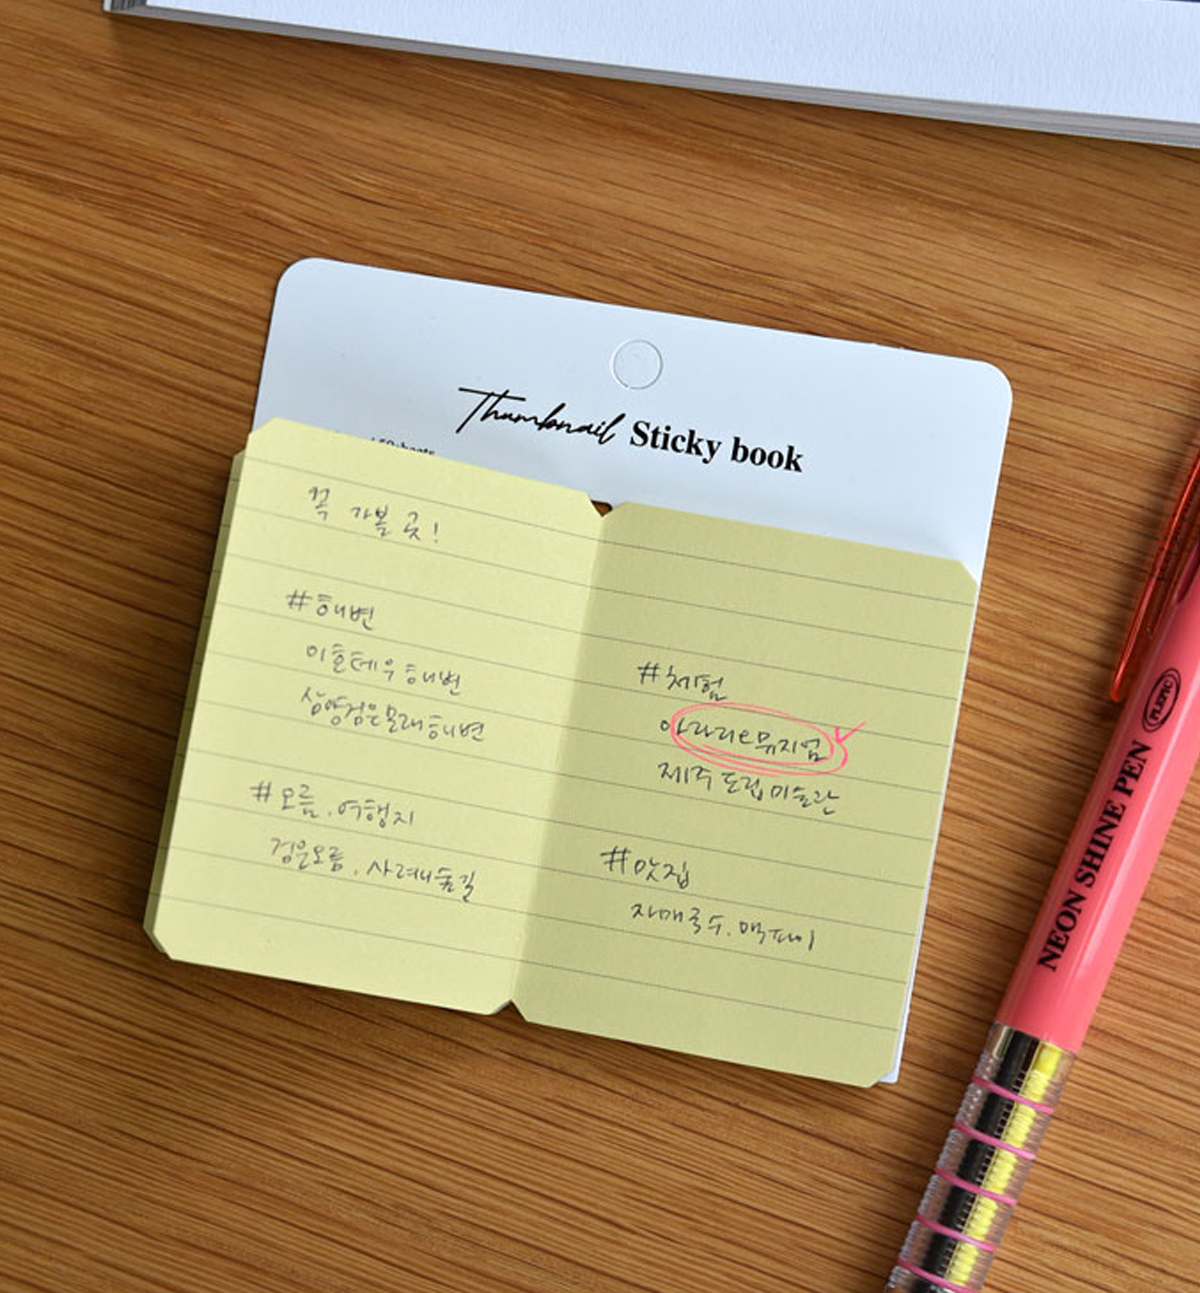 Thumbnail Sticky book
꼭 가볼 곳!
#해변
이호테우 해변
삼양검은모래해변
#오름.여행지
검은오름. 사려니숲길
#체험
아라리오뮤지엄
제주 도립 미술관
#맛집
자매국수. 맥파이
NEON SHINE PEN
FLEPIC